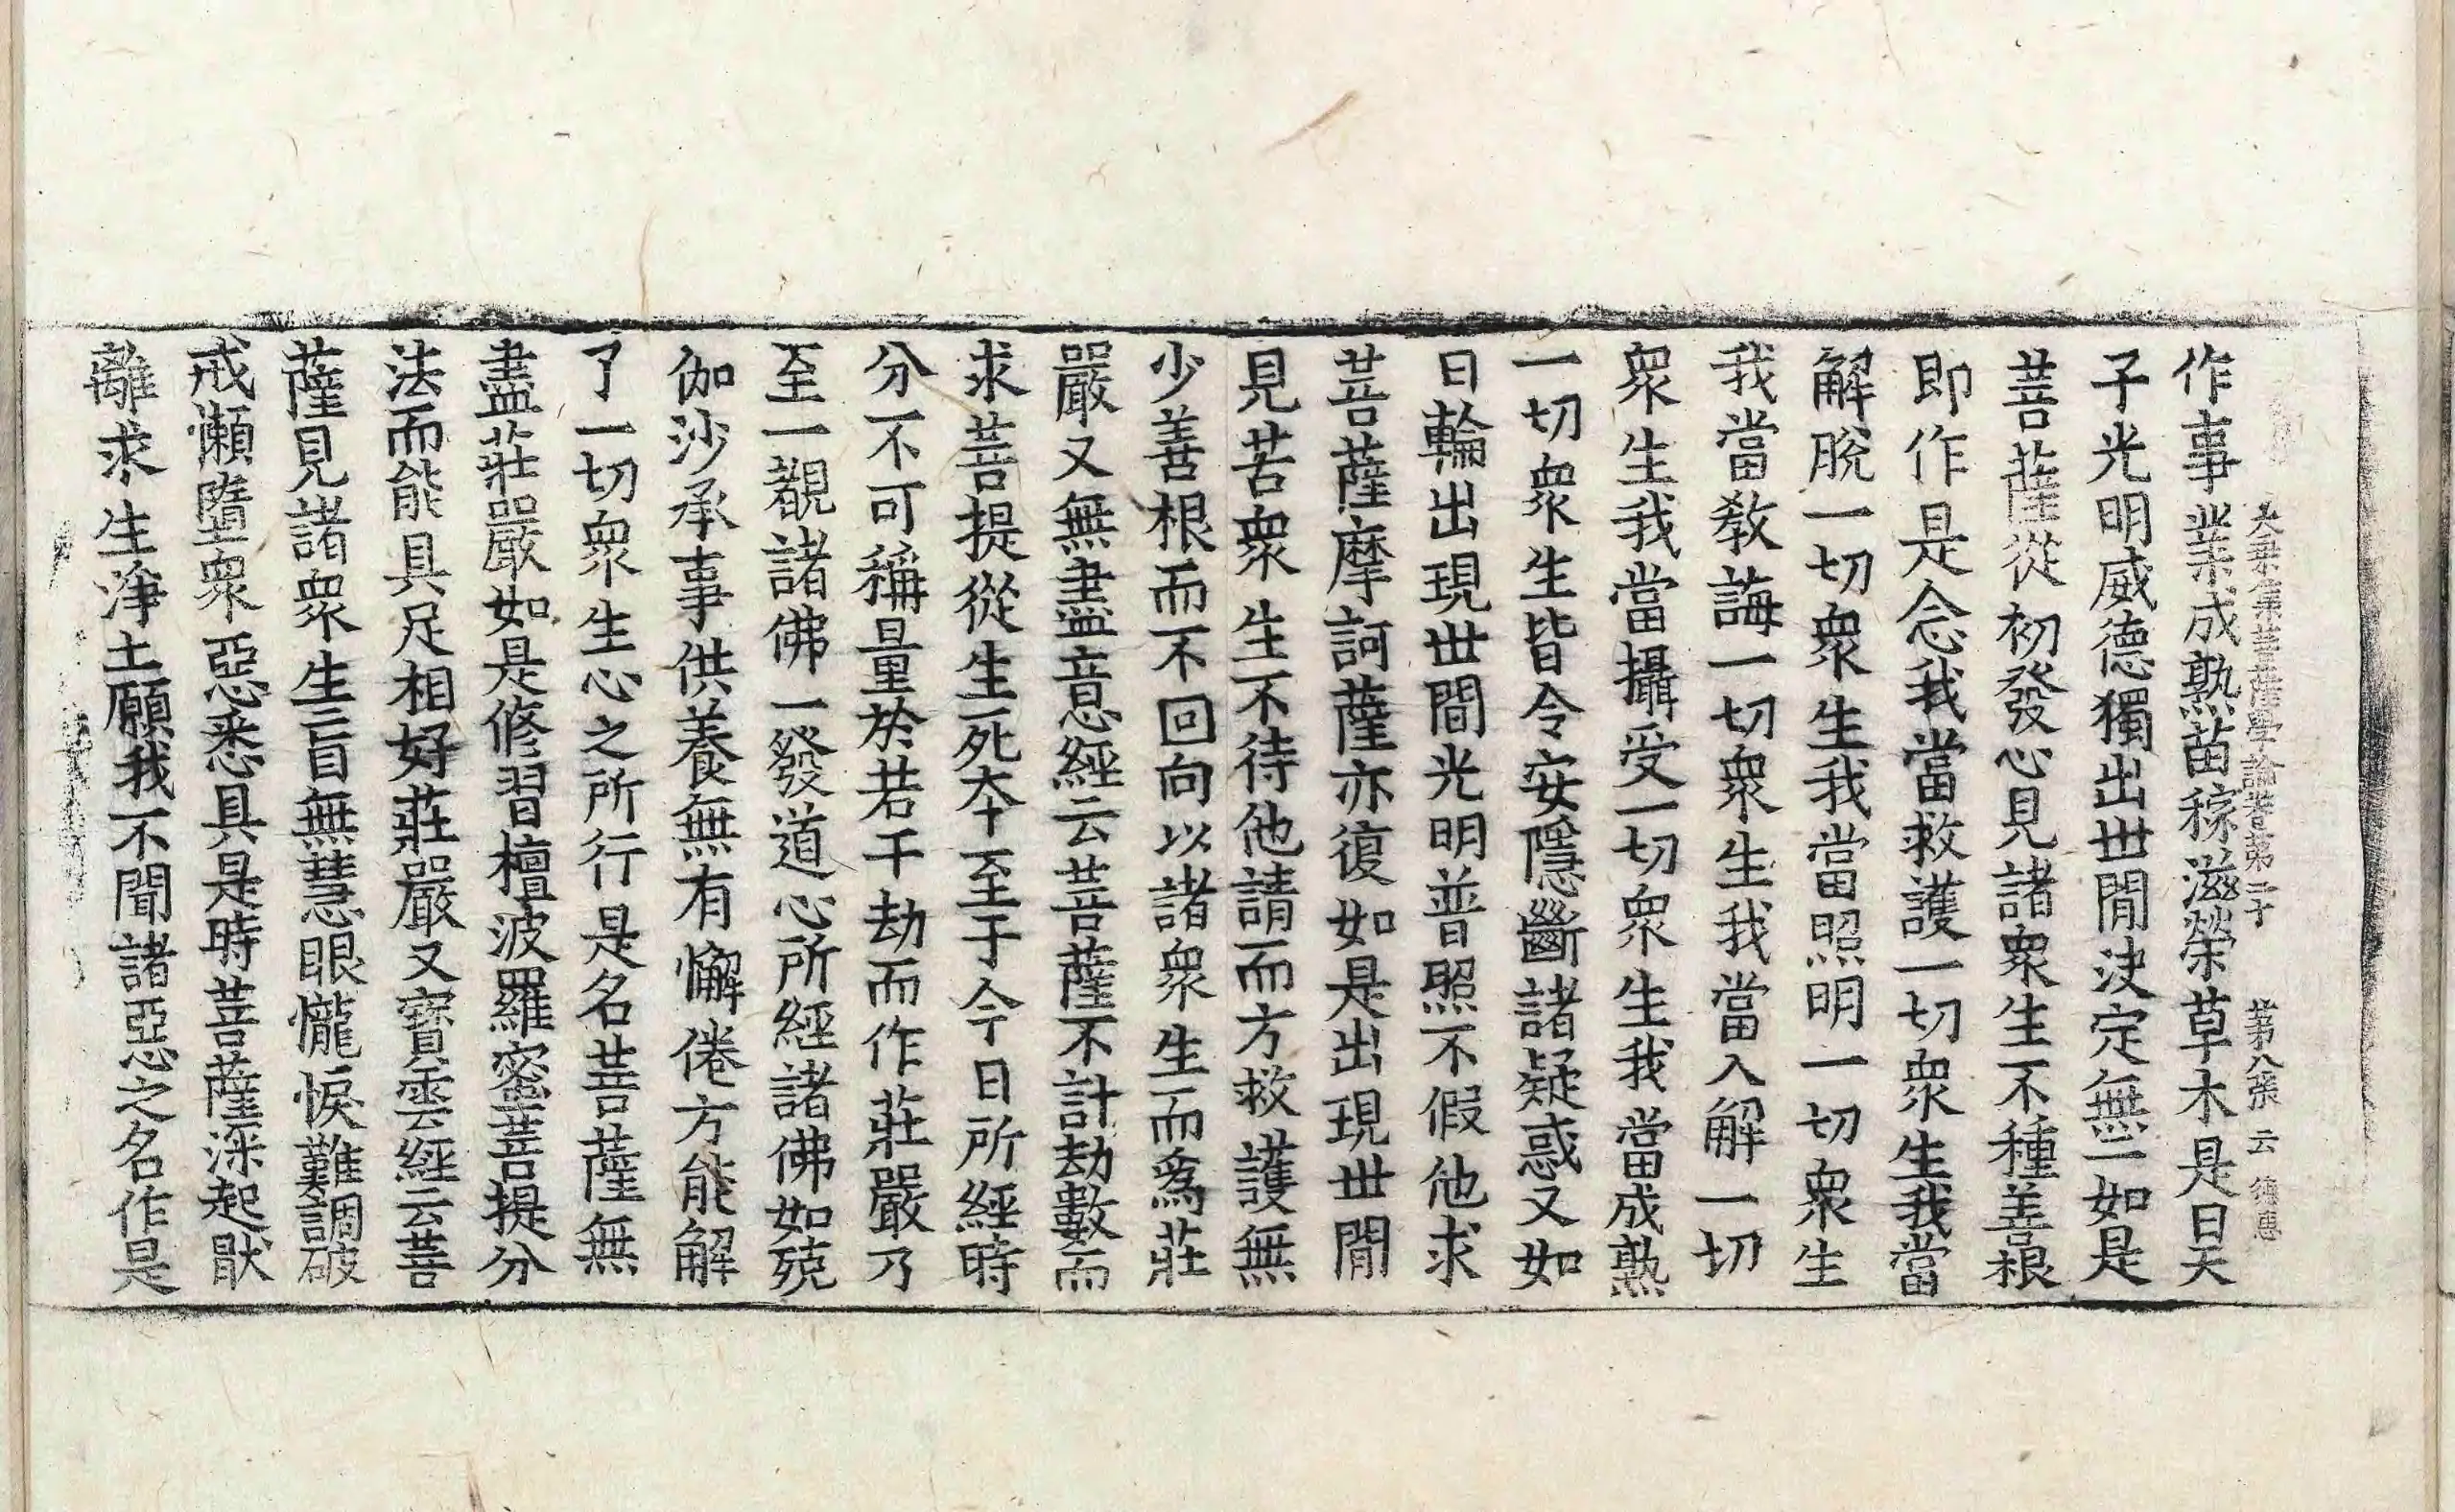 大乘集菩薩學論卷第二十 第八張 云 德惠
作事業成熟苗稼滋榮草木是日天
子光明威德獨出世間決定無二如是
菩薩從初發心見諸衆生不種善根
即作是念我當救護一切衆生我當
解脫一切衆生我當照明一切衆生
我當教誨一切衆生我當入解一切
衆生我當攝受一切衆生我當成熟
一切衆生皆令安隱斷諸疑惑又如
日輪出現世間光明普照不假他求
菩薩摩訶薩亦復如是出現世間
見苦衆生不待他請而方救護無
少善根而不回向以諸衆生而爲莊
嚴又無盡意經云菩薩不計劫數而
求菩提從生死夲至于今日所經時
分不可稱量於若干劫而作莊嚴乃
至一覩諸佛一發道心所經諸佛如殑
伽沙承事供養無有懈倦方能解
了一切衆生心之所行是名菩薩無
盡莊嚴如是修習檀波羅蜜菩提分
法而能具足相好莊嚴又寶雲經云菩
薩見諸衆生盲無慧眼㦬悷難調破
戒懶墮衆惡悉具是時菩薩深起猒
離求生淨土願我不聞諸惡之名作是